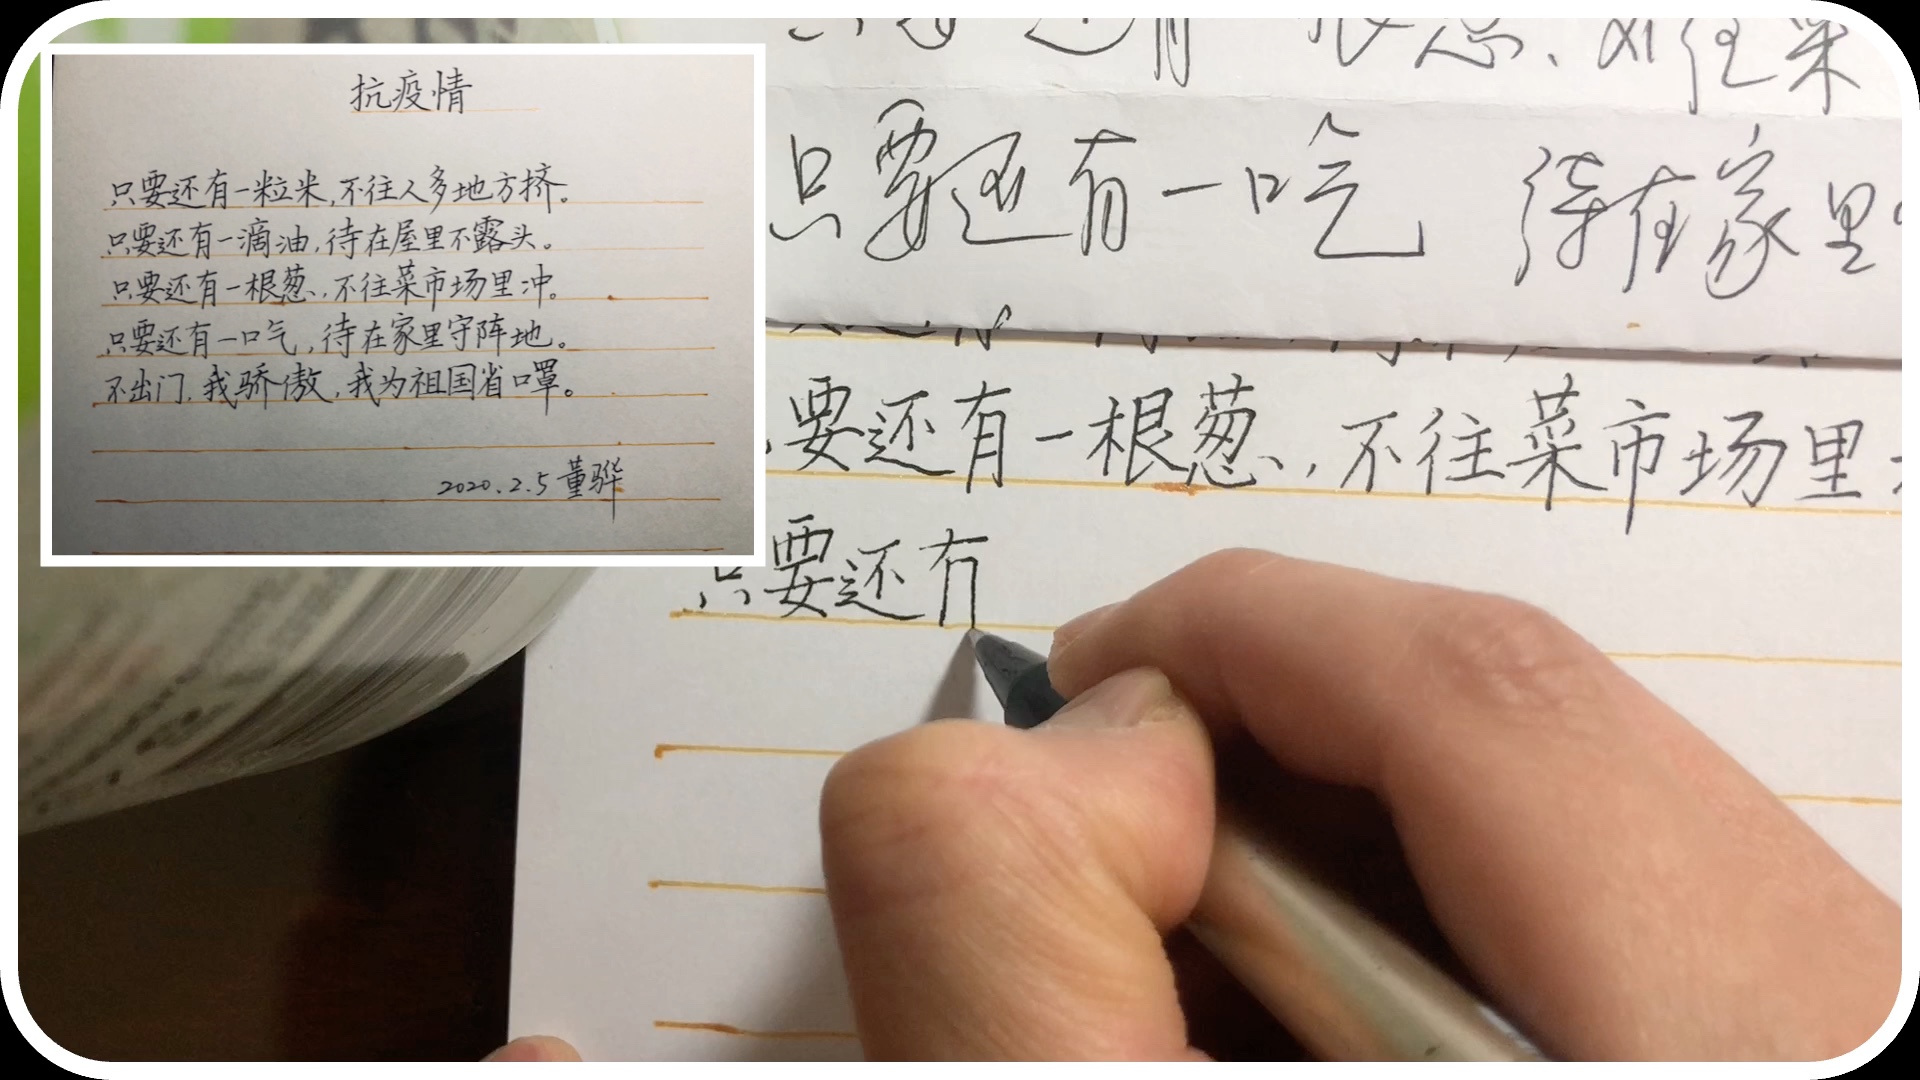 抗疫情
只要还有一粒米,不往人多地方挤。
只要还有一滴油,待在屋里不露头。
只要还有一根葱,不往菜市场里冲。
只要还有一口气,待在家里守阵地。
不出门,我骄傲,我为祖国省口罩。
2020.2.5 董骅
只要还有一口气 待在家里
要还有一根葱,不往菜市场里
只要还有